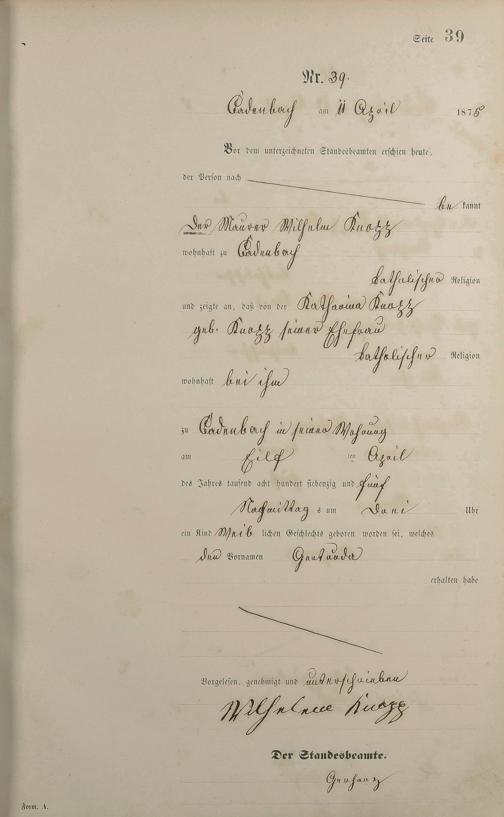 Seite 39
Nr. 39.
Cadenbach am 11 April 1875
Vor dem unterzeichneten Standesbeamten erschien heute,
der Person nach
be kannt
Der Maurer Wilhelm Knopp
wohnhaft zu Cadenbach
katholischer Religion
und zeigte an, daß von der Katharina Knopp
geb. Knopp seiner Ehefrau
katholischer Religion
wohnhaft bei ihm
zu Cadenbach in seiner Wohnung
am Eilf ten April
des Jahres tausend acht hundert siebenzig und fünf
Nachmittag s um Drei Uhr
ein Kind Weib lichen Geschlechts geboren worden sei, welches
den Vornamen Gertruda
erhalten habe
Vorgelesen, genehmigt und unterschrieben
Wilhelm Knopp
Der Standesbeamte.
Form. A.